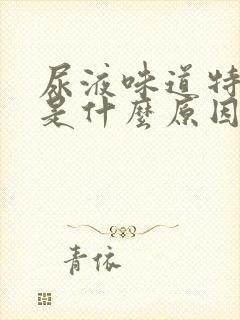 尿液味道特
是什麼原因
青依